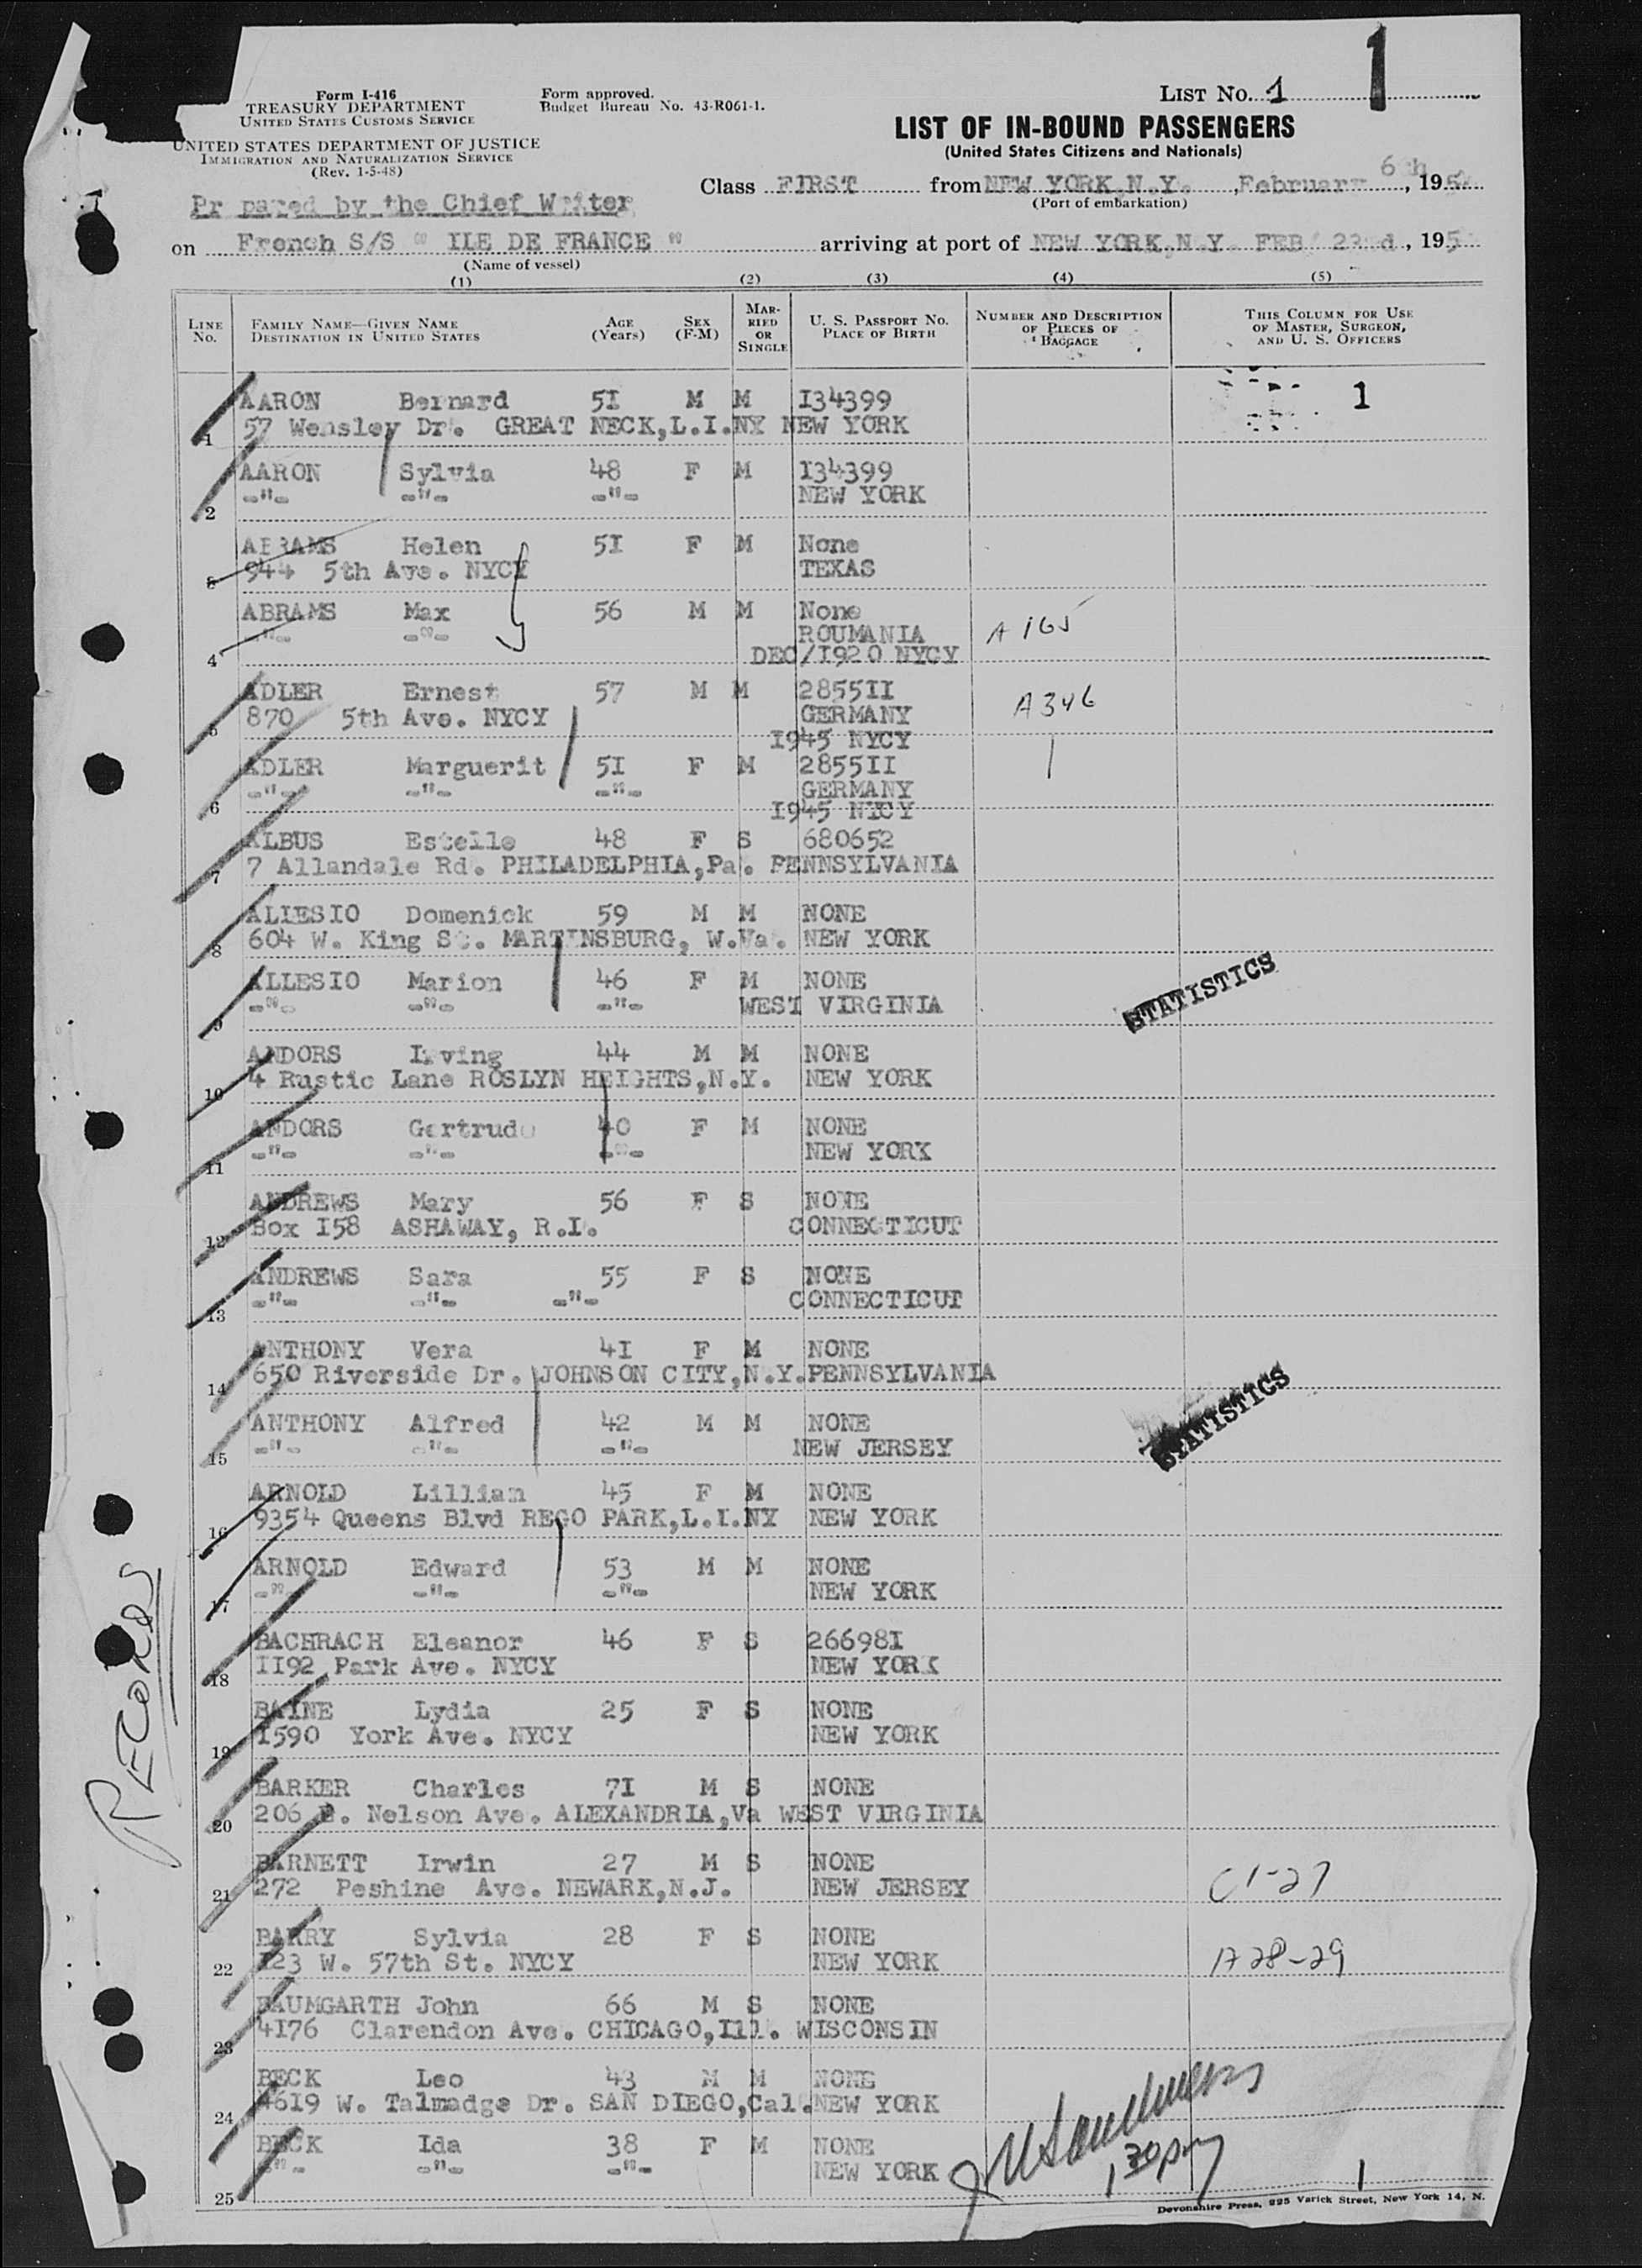 1
Form I-416
TREASURY DEPARTMENT
UNITED STATES CUSTOMS SERVICE
Form approved.
Budget Bureau No. 43-R061-1.
LIST NO. 1
UNITED STATES DEPARTMENT OF JUSTICE
IMMIGRATION AND NATURALIZATION SERVICE
(Rev. 1-5-48)
LIST OF IN-BOUND PASSENGERS
(United States Citizens and Nationals)
Class FIRST from NEW YORK, N.Y. , February 6th, 195
(Port of embarkation)
Pr pared by the Chief Writer
on French S/S " ILE DE FRANCE " arriving at port of NEW YORK, N.Y. FEB 23rd, 195
(Name of vessel)
(1) (2) (3) (4) (5)
LINE NO. FAMILY NAME—GIVEN NAME DESTINATION IN UNITED STATES AGE (Years) SEX (F-M) MARRIED OR SINGLE U. S. PASSPORT NO. PLACE OF BIRTH NUMBER AND DESCRIPTION OF PIECES OF BAGGAGE THIS COLUMN FOR USE OF MASTER, SURGEON, AND U. S. OFFICERS
AARON Bernard 5I M M I34399 1
1 57 Wensley Dr. GREAT NECK,L.I.NY NEW YORK
AARON Sylvia 48 F M I34399
2 -"- -"- -"- NEW YORK
ABRAMS Helen 5I F M None
944 5th Ave. NYCY TEXAS
ABRAMS Max 56 M M None
-"- -"- ROUMANIA A 165
4 DEC/I920 NYCY
ADLER Ernest 57 M M 2855II
5 870 5th Ave. NYCY GERMANY A346
I945 NYCY
ADLER Marguerit 5I F M 2855II
-"- -"- -"- GERMANY
6 I945 NYCY
ALBUS Estelle 48 F S 680652
7 7 Allandale Rd. PHILADELPHIA,Pa. PENNSYLVANIA
ALIESIO Domenick 59 M M NONE
8 604 W. King St. MARTINSBURG, W.Va. NEW YORK
ALLESIO Marion 46 F M NONE
9 -"- -"- -"- WEST VIRGINIA
STATISTICS
ANDORS Irving 44 M M NONE
10 4 Rustic Lane ROSLYN HEIGHTS,N.Y. NEW YORK
ANDORS Gertrude 40 F M NONE
11 -"- -"- -"- NEW YORK
ANDREWS Mary 56 F S NONE
12 Box I58 ASHAWAY, R.I. CONNECTICUT
ANDREWS Sara 55 F S NONE
13 -"- -"- -"- CONNECTICUT
ANTHONY Vera 4I F M NONE
14 650 Riverside Dr. JOHNSON CITY,N.Y. PENNSYLVANIA
ANTHONY Alfred 42 M M NONE
15 -"- -"- -"- NEW JERSEY
STATISTICS
ARNOLD Lillian 45 F M NONE
16 9354 Queens Blvd REGO PARK,L.I.NY NEW YORK
ARNOLD Edward 53 M M NONE
17 -"- -"- -"- NEW YORK
BACHRACH Eleanor 46 F S 26698I
18 II92 Park Ave. NYCY NEW YORK
BAINE Lydia 25 F S NONE
19 I590 York Ave. NYCY NEW YORK
BARKER Charles 7I M S NONE
20 206 E. Nelson Ave. ALEXANDRIA,Va WEST VIRGINIA
BARNETT Irwin 27 M S NONE
21 272 Peshine Ave. NEWARK,N.J. NEW JERSEY C1-27
BARRY Sylvia 28 F S NONE
22 I23 W. 57th St. NYCY NEW YORK A 28-29
BAUMGARTH John 66 M S NONE
23 4I76 Clarendon Ave. CHICAGO,Ill. WISCONSIN
BECK Leo 43 M M NONE
24 46I9 W. Talmadge Dr. SAN DIEGO,Cal. NEW YORK
BECK Ida 38 F M NONE
25 -"- -"- -"- NEW YORK
1 30 pm 1
Devonshire Press, 225 Varick Street, New York 14, N.
RECORDS